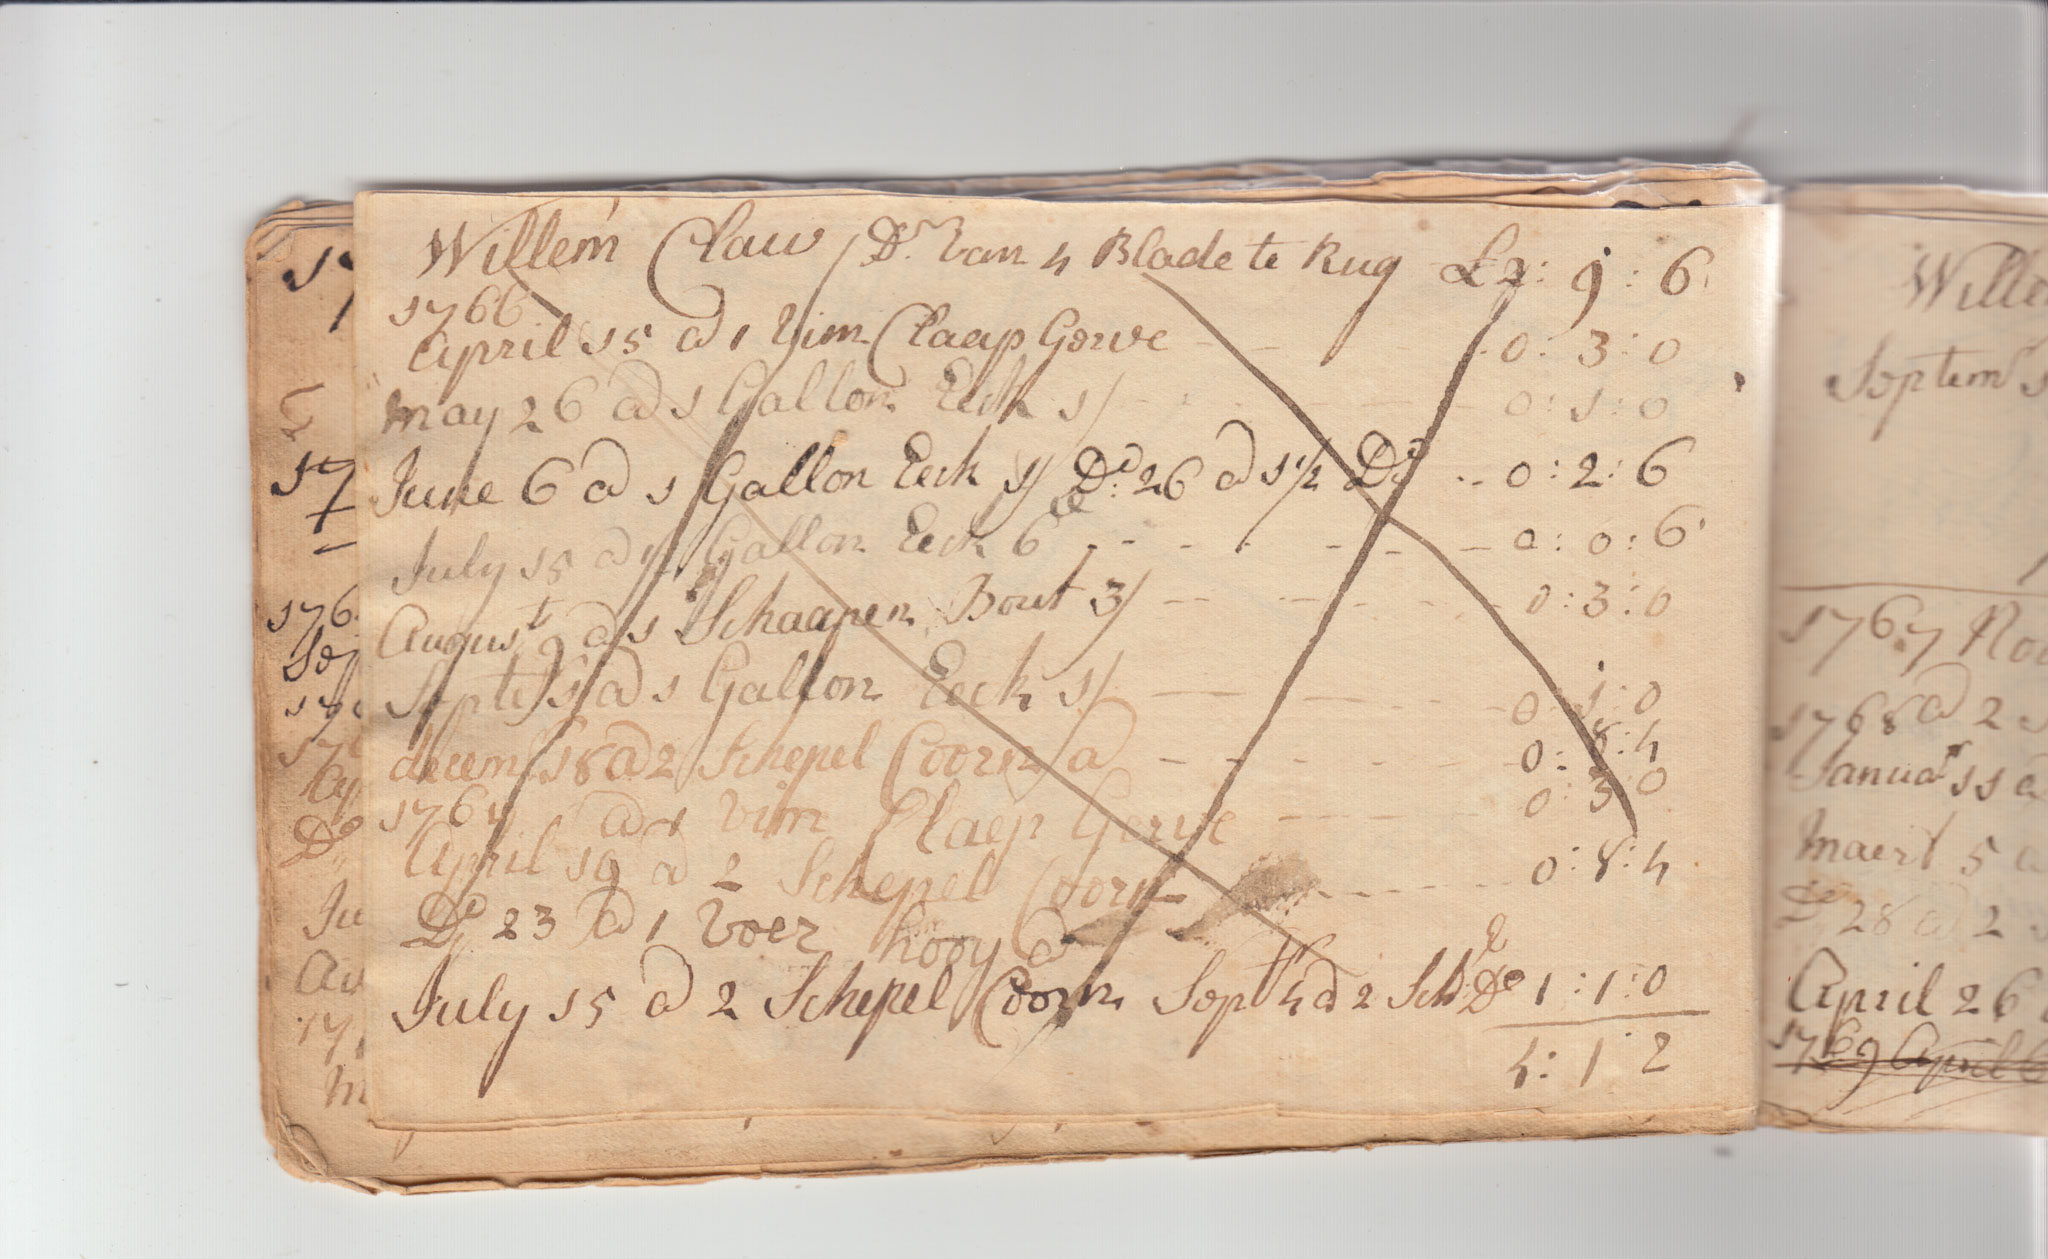 Willem Claw Dr Van 4 Blade te Rug £2 : 9 : 6
1766
April 15 @ 1 Vim Claap Gerve 0 : 3 : 0
may 26 @ 1 Gallon Eeck 1/ 0 : 1 : 0
June 6 @ 1 Gallon Eeck 1/ Do 26 @ 1 1/2 Do 0 : 2 : 6
July 15 @ 1/2 Gallon Eeck 6d 0 : 0 : 6
August 9 @ 1 Schaapen Bout 3/ 0 : 3 : 0
Septe 1 @ 1 Gallon Eeck 1/ 0 : 1 : 0
decem 18 @ 2 Schepel Coorn @ 0 : 8 : 4
1767 @ 1 Vim Claep Gerve 0 : 3 : 0
April 19 @ 2 Schepel Coorn 0 : 8 : 4
Do 23 @ 1 Voer hooy @
July 15 @ 2 Schepel Coorn Sept 4 @ 2 Schl Do 1 : 1 : 0
4 : 1 : 2
Wille
Septem 1
1767 No
1768 @ 2
Januar 11 @
Maert 5 @
Do 28 @ 2
April 26
1769 April 6